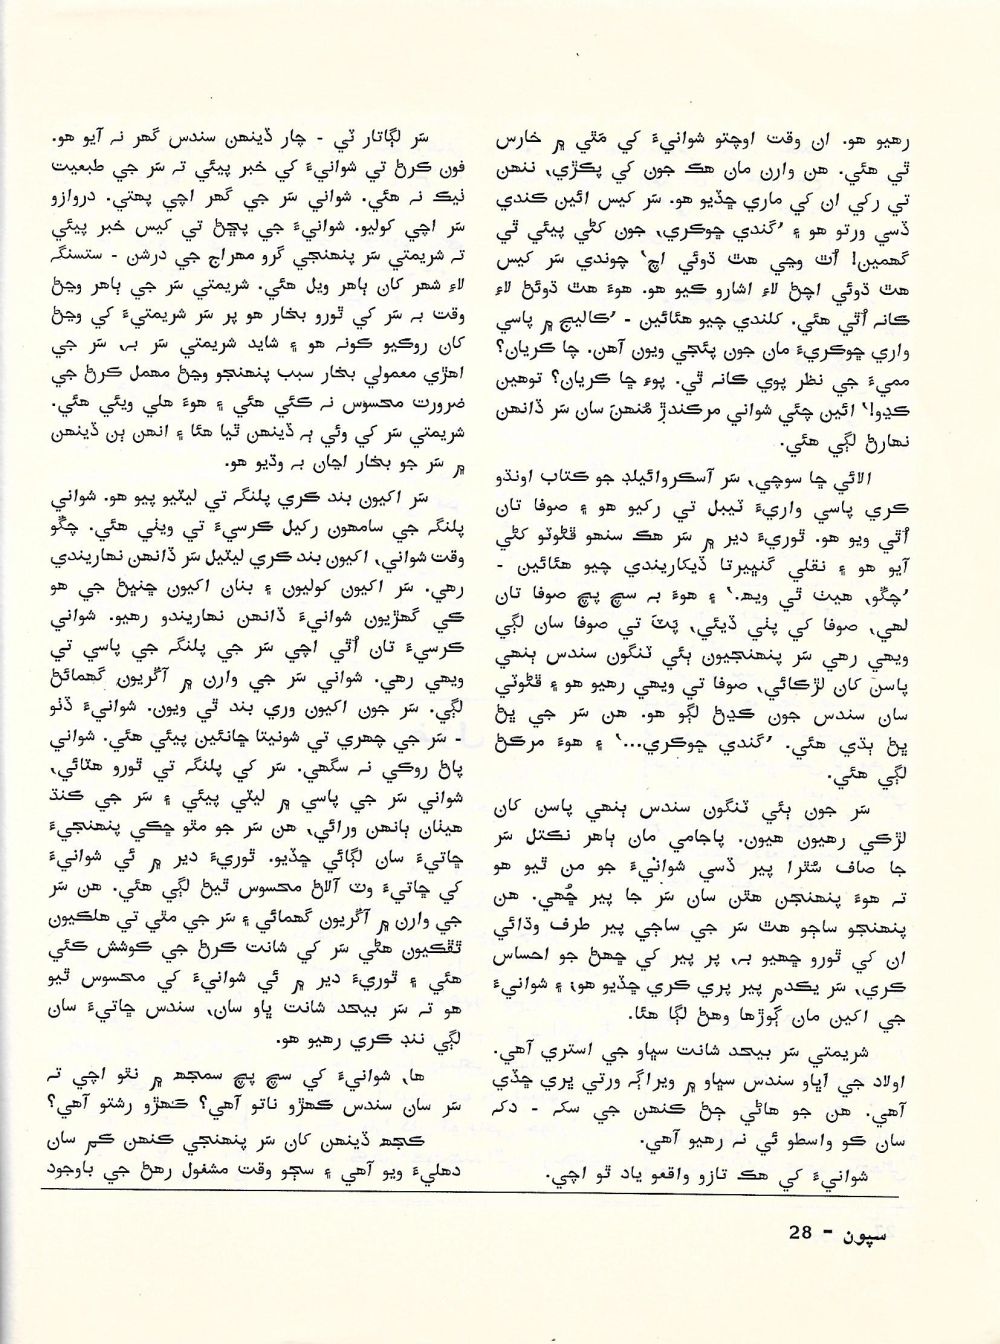 رهيو هو. ان وقت اوچتو شوانيءَ کي مَٿي ۾ خارس
ٿي هئي. هن وارن مان هڪ جون کي پڪڙي، ننهن
تي رکي ان کي ماري ڇڏيو هو. سَر کيس ائين ڪندي
ڏسي ورتو هو ۽ ’گندي ڇوڪري، جون کڻي پيئي ٿي
گهمين! اُٿ وڃي هٿ ڌوئي اچ‘ چوندي سَر کيس
هٿ ڌوئي اچڻ لاءِ اشارو ڪيو هو. هوءَ هٿ ڌوئڻ لاءِ
ڪانہ اُٿي هئي. کلندي چيو هئائين - ’ڪاليج ۾ پاسي
واري ڇوڪريءَ مان جون پئجي ويون آهن. ڇا ڪريان؟
مميءَ جي نظر پوي ڪانہ ٿي. پوءِ ڇا ڪريان؟ توهين
ڪڍو!‘ ائين چئي شواني مرڪندڙ مُنهنَ سان سَر ڏانهن
نهارڻ لڳي هئي.
الائي ڇا سوچي، سَر آسڪروائيلڊ جو ڪتاب اونڌو
ڪري پاسي واريءَ ٽيبل تي رکيو هو ۽ صوفا تان
اُٿي ويو هو. ٿوريءَ دير ۾ سَر هڪ سنهو ڦڻوٽو کڻي
آيو هو ۽ نقلي گنڀيرتا ڏيکاريندي چيو هئائين -
’چڱو، هيٺ ٿي ويهہ.‘ ۽ هوءَ بہ سچ پچ صوفا تان
لهي، صوفا کي پٺي ڏيئي، پَٽَ تي صوفا سان لڳي
ويهي رهي سَر پنهنجيون ٻئي ٽنگون سندس ٻنهي
پاسن کان لڙڪائي، صوفا تي ويهي رهيو هو ۽ ڦڻوٽي
سان سندس جون ڪڍڻ لڳو هو. هن سَر جي ڀڻ
ڀڻ ٻڌي هئي. ’گندي ڇوڪري...‘ ۽ هوءَ مرڪڻ
لڳي هئي.
سَر جون ٻئي ٽنگون سندس ٻنهي پاسن کان
لڙڪي رهيون هيون. پاجامي مان ٻاهر نڪتل سَر
جا صاف سُٿرا پير ڏسي شوانيءَ جو من ٿيو هو
تہ هوءَ پنهنجن هٿن سان سَر جا پير ڇُهي. هن
پنهنجو ساڄو هٿ سَر جي ساڄي پير طرف وڌائي
ان کي ٿورو ڇهيو بہ، پر پير کي ڇهڻ جو احساس
ڪري، سَر يڪدم پير پري ڪري ڇڏيو هو، ۽ شوانيءَ
جي اکين مان ڳوڙها وهڻ لڳا هئا.
شريمتي سَر بيحد شانت سڀاو جي استري آهي.
اولاد جي اڀاو سندس سڀاو ۾ ويراڳہ ورتي ڀري ڇڏي
آهي. هن جو هاڻي ڄڻ ڪنهن جي سکہ - دکہ
سان ڪو واسطو ئي نہ رهيو آهي.
شوانيءَ کي هڪ تازو واقعو ياد ٿو اچي.
سَر لڳاتار ٽي - چار ڏينهن سندس گهر نہ آيو هو.
فون ڪرڻ تي شوانيءَ کي خبر پيئي تہ سَر جي طبعيت
ٺيڪ نہ هئي. شواني سَر جي گهر اچي پهتي. دروازو
سَر اچي کوليو. شوانيءَ جي پڇڻ تي کيس خبر پيئي
تہ شريمتي سَر پنهنجي گرو مهراج جي درشن - ستسنگہ
لاءِ شهر کان ٻاهر ويل هئي. شريمتي سَر جي ٻاهر وڃڻ
وقت بہ سَر کي ٿورو بخار هو پر سَر شريمتيءَ کي وڃڻ
کان روڪيو ڪونہ هو ۽ شايد شريمتي سَر بہ، سَر جي
اهڙي معمولي بخار سبب پنهنجو وڃڻ مهمل ڪرڻ جي
ضرورت محسوس نہ ڪئي هئي ۽ هوءَ هلي ويئي هئي.
شريمتي سَر کي وئي ٻہ ڏينهن ٿيا هئا ۽ انهن ٻن ڏينهن
۾ سَر جو بخار اڃان بہ وڌيو هو.
سَر اکيون بند ڪري پلنگہ تي ليٽيو پيو هو. شواني
پلنگہ جي سامهون رکيل ڪرسيءَ تي ويٺي هئي. چڱو
وقت شواني، اکيون بند ڪري ليٽيل سَر ڏانهن نهاريندي
رهي. سَر اکيون کوليون ۽ بنان اکيون ڇنڀڻ جي هو
ڪي گهڙيون شوانيءَ ڏانهن نهاريندو رهيو. شواني
ڪرسيءَ تان اُٿي اچي سَر جي پلنگہ جي پاسي تي
ويهي رهي. شواني سَر جي وارن ۾ آڱريون گهمائڻ
لڳي. سَر جون اکيون وري بند ٿي ويون. شوانيءَ ڏٺو
- سَر جي چهري تي شونيتا ڇانئين پيئي هئي. شواني
پاڻ روڪي نہ سگهي. سَر کي پلنگہ تي ٿورو هٽائي،
شواني سَر جي پاسي ۾ ليٽي پيئي ۽ سَر جي ڪنڌ
هيٺان ٻانهن ورائي، هن سَر جو مٿو ڇڪي پنهنجيءَ
ڇاتيءَ سان لڳائي ڇڏيو. ٿوريءَ دير ۾ ئي شوانيءَ
کي ڇاتيءَ وٽ آلاڻ محسوس ٿيڻ لڳي هئي. هن سَر
جي وارن ۾ آڱريون گهمائي ۽ سَر جي مٿي تي هلڪيون
ٿڦڪيون هڻي سَر کي شانت ڪرڻ جي ڪوشش ڪئي
هئي ۽ ٿوريءَ دير ۾ ئي شوانيءَ کي محسوس ٿيو
هو تہ سَر بيحد شانت ڀاو سان، سندس ڇاتيءَ سان
لڳي ننڊ ڪري رهيو هو.
ها، شوانيءَ کي سچ پچ سمجهہ ۾ نٿو اچي تہ
سَر سان سندس ڪهڙو ناتو آهي؟ ڪهڙو رشتو آهي؟
ڪجهہ ڏينهن کان سَر پنهنجي ڪنهن ڪم سان
دهليءَ ويو آهي ۽ سڄو وقت مشغول رهڻ جي باوجود
سپون - 28